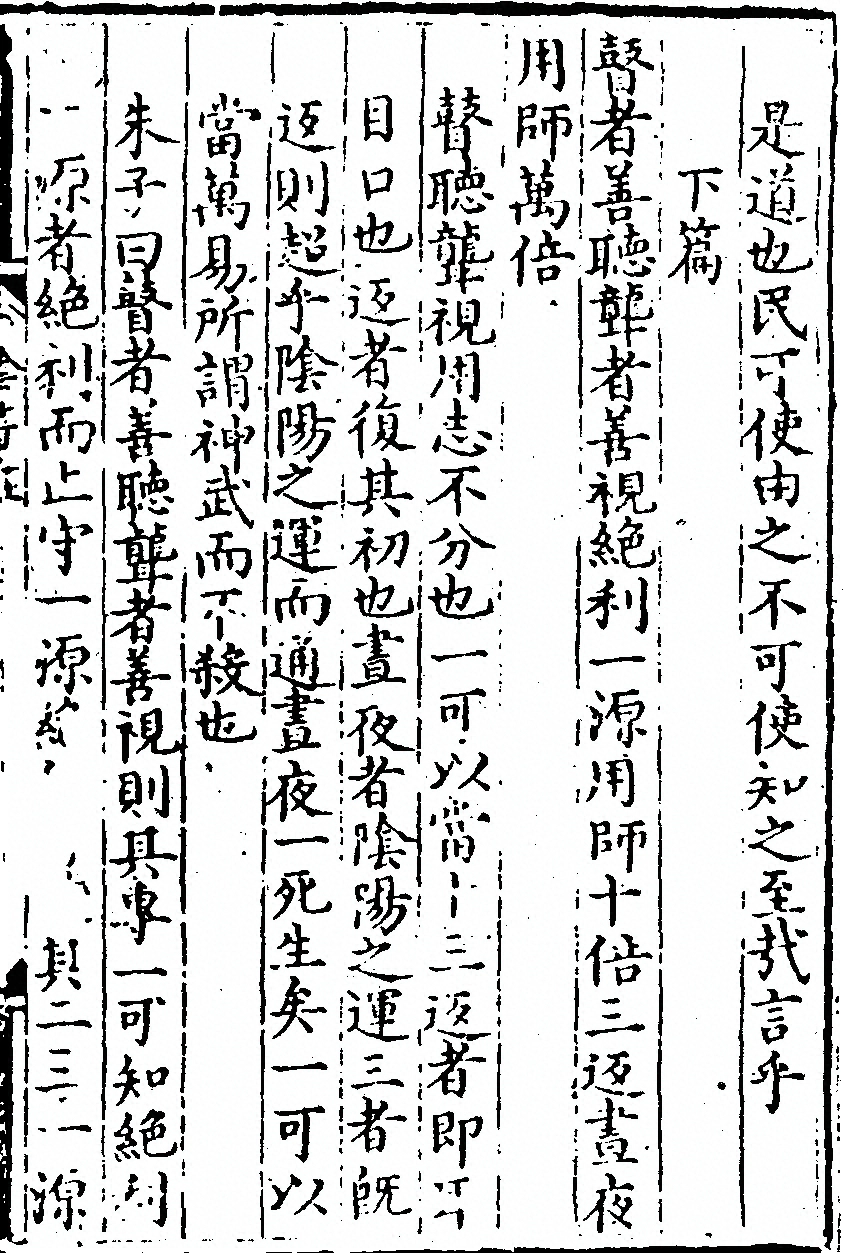 是道也民可使由之不可使知之至哉言乎
下篇
瞽者善聽聾者善視絶利一源用師十倍三返晝夜
用師萬倍
瞽聽聾視用志不分也一可以當十三返者即耳
目口也返者復其初也晝夜者陰陽之運三者既
返則超乎陰陽之運而通晝夜一死生矣一可以
當萬易所謂神武而不殺也
朱子曰瞽者善聽聾者善視則其專一可知絶利
一源者絶利而止守一源
其二三一源